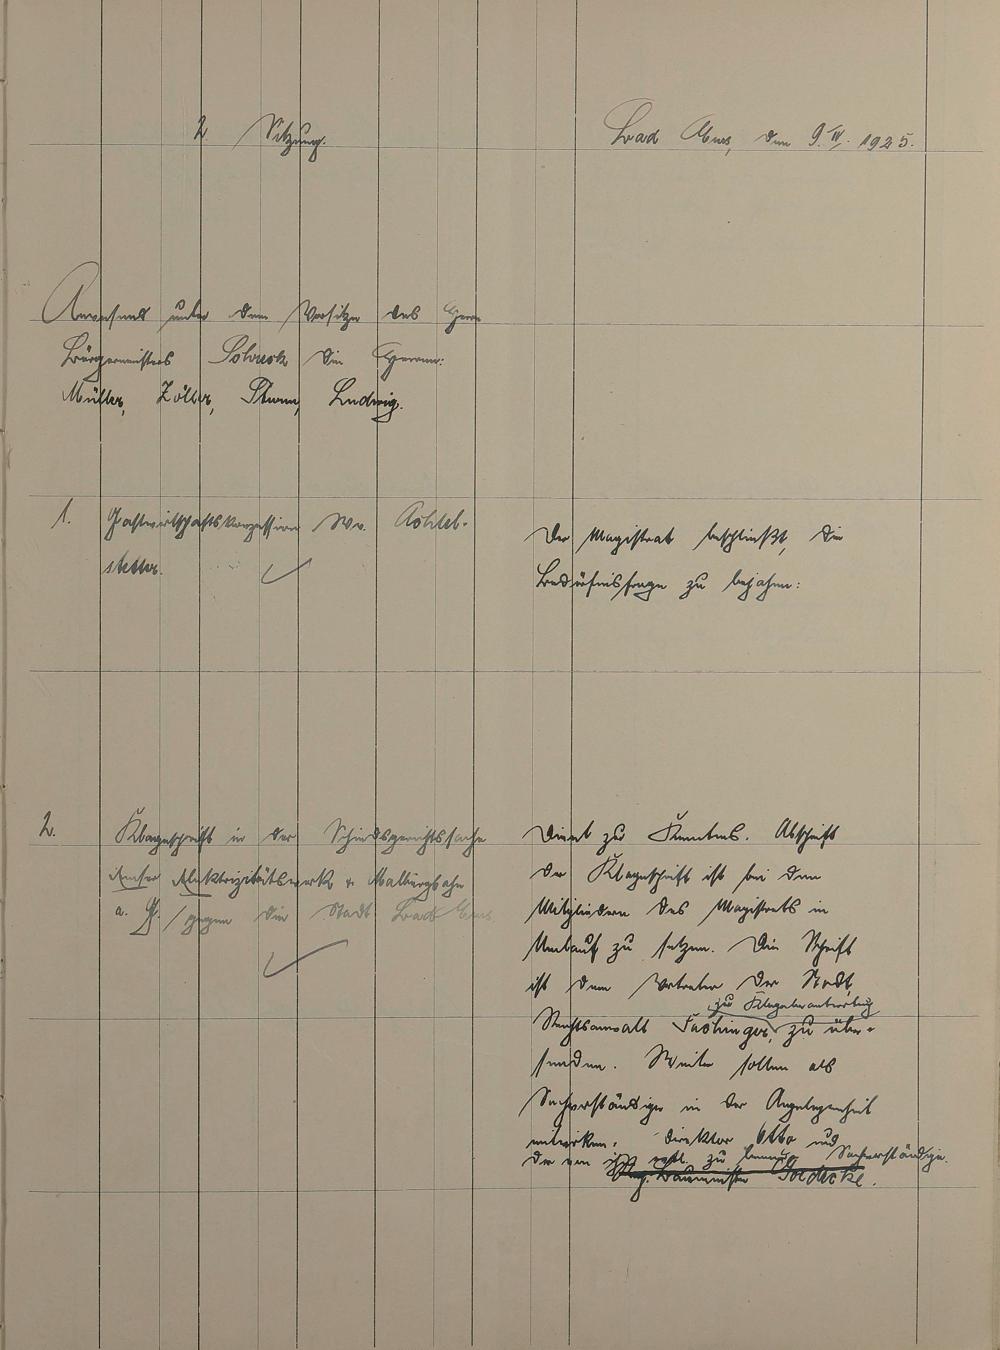 2 Sitzung.
Bad Ems, den 9. IV. 1925.
Anwesend unter dem Vorsitze des Herrn
Bürgermeisters Schreck die Herren:
Müller, Zöller, Thurm, Ludwig.
1. Gastwirtschaftskonzession Ww. Achtel-
stetter.
Der Magistrat beschließt, die
Bedürfnisfrage zu bejahen:
2. Klageschrift in der Schiedsgerichtssache
Emser Elektrizitätswerk & Malbergbahn
A. G. / gegen die Stadt Bad Ems
Dient zur Kenntnis. Abschrift
der Klageschrift ist bei den
Mitgliedern des Magistrats in
Umlauf zu setzen. Die Schrift
ist dem Vertreter der Stadt,
zur Klagebeantwortung
Rechtsanwalt Fachinger, zu über-
senden. Weiter sollen als
Sachverständige in der Angelegenheit
mitwirken: Direktor Otto und
der von ihm evtl. zu benennende Sachverständige.
Ing. Baumeister Goedecke.